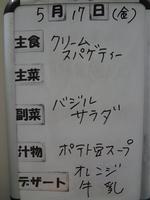 5月17日(金)
主食 クリーム
スパゲティー
主菜
副菜 バジル
サラダ
汁物 ポテト豆スープ
デザート オレンジ
牛乳